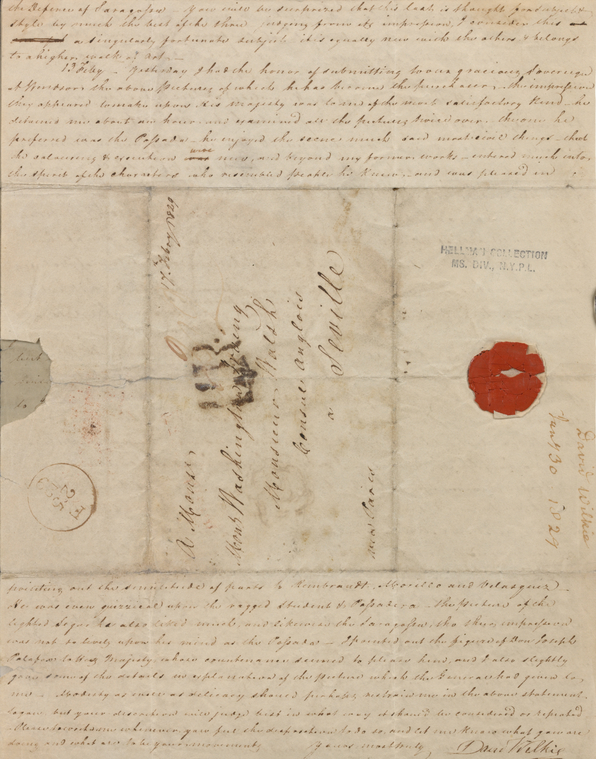 the Defence of Saragossa You will be surprised that his last is thought for subject &
style by much the best of the three judging from its impression, I consider this
a singularly fortunate subject it is equally new with the others & belongs
to a higher walk of art.
Yesterday I had the honor of submitting to our gracious Sovereign
at Windsor the above Pictures of which he has become the purchaser, the impression
they appeared to make upon His Majesty was to me of the most satisfactory kind he
detained me about an hour and examined all the pictures twice over the one he
preferred was the Possada he enjoyed the scene much said most civil things that
the colouring & execution were new, and beyond my former works entered much into
the spirit of the characters who resembled people he knew and was pleased in
17 Feby 1829
A Monsr
Monsr Washington Irving
Monsieur Walsh
Consul Anglois
a Seville
HELLMAN COLLECTION
MS. DIV., N.Y.P.L.
David Wilkie
Jany 30 1829
pointing out the similitude of parts to Rembrandt, Morillo and Velasquez
He was even quizzical upon the ragged Student & Possadera The picture of the
also liked much, and likewise the Saragossa, tho' they impression
was not so lively upon his mind as the Possada I pointed out the figure of Don Joseph
Palafox to His Majesty whose countenance seemed to please him, and I also slightly
gave some of the details in explanation of the Picture which the General had given to
me Modesty as well as delicacy should perhaps restrain me in the above statement
to you but your discretion will judge best in what way it should be considered or repeated
Please to write me whenever you feel the disposition to do so, and let me know what you are
doing and what are to be your movements Yours most truly, David Wilkie